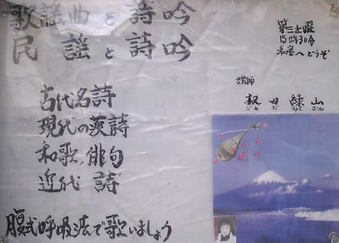 歌謡曲と詩吟
民謡と詩吟
第三土曜
15時30分
和室へどうぞ
講師
田緑山
古代名詩
現代の漢詩
和歌 俳句
近代 詩
腹式呼吸法で歌いましょう